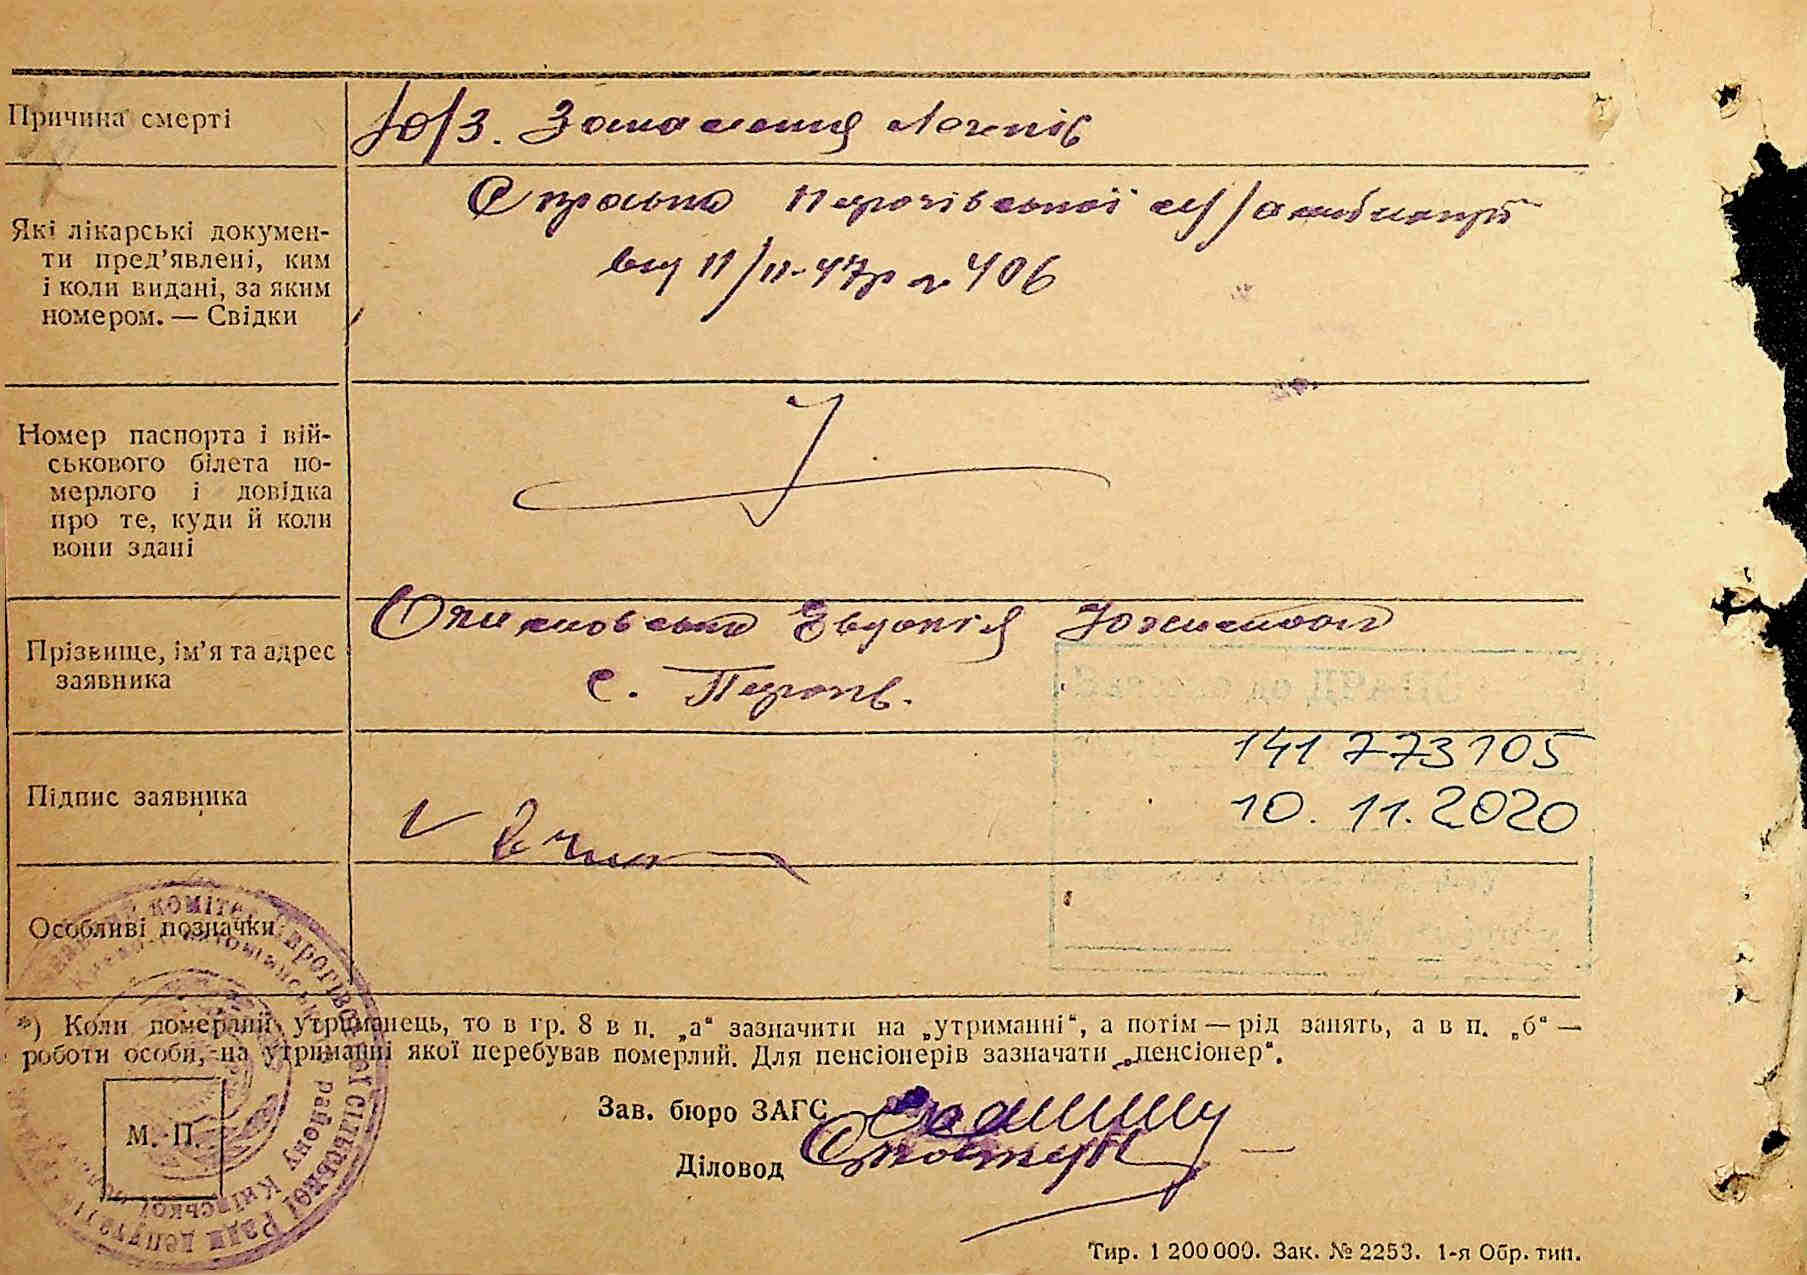 Причина смерті
Ю/З. Запалення Легенів
Які лікарські докумен-
ти пред'явлені, ким
і коли видані, за яким
номером. — Свідки
Справка Пирогівської амбулаторії
від 11/II-47р № 406
Номер паспорта і вій-
ськового білета по-
мерлого і довідка
про те, куди й коли
вони здані
Прізвище, ім'я та адрес
заявника
Евдокія
с. Пирогів.
141 773105
Підпис заявника
10. 11. 2020
Особливі позначки
*) Коли померлий утриманець, то в гр. 8 в п. „а“ зазначити на „утриманні“, а потім — рід занять, а в п. „б“ —
роботи особи, на утриманні якої перебував померлий. Для пенсіонерів зазначати „пенсіонер“.
Зав. бюро ЗАГС
Діловод
М. П.
комітет Пирогівської сільської Ради депутатів
району Київської
Тир. 1 200 000. Зак. № 2253. 1-я Обр. тип.